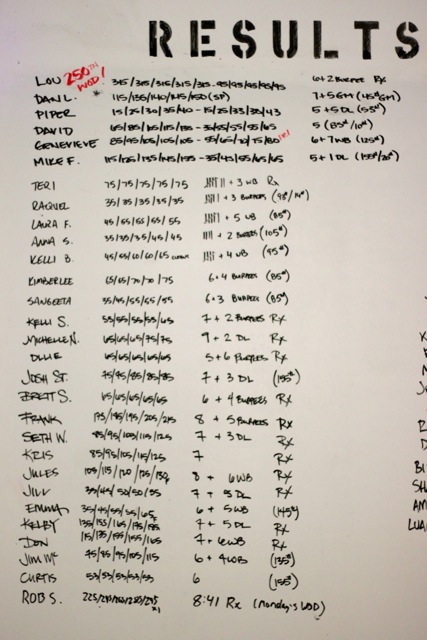 RESULTS
LOU 250TH WOD! 315/315/315/315/315 - 95/95/95/95/95 6+2 BURPEE Rx
DAN L. 115/135/140/145/150 (SP) 7+5 G+H (45# G+H)
PIPER 15/25/30/35/40 - 15/25/33/35/43 5+5 DL (55#)
DAVID 5 (85#/10#)
GENEVIEVE 85/95/105/105/105 - 6+7 WB (125#)
MIKE F. 115/125/135/145/155 - 35/45/55/65/65 5+1 DL (155#/20#)
TERI 75/75/75/75/75 + 3 WB Rx
RAQUEL 35/35/35/35/35 + 3 BURPEES
LAURA F. 45/55/55/55/55 + 5 WB (85#)
ANNA S. 35/35/35/45/45 + 2 BURPEES (105#)
KELLI B. 45/55/60/60/65 + 4 WB (95#)
KIMBERLEE 65/65/70/70/75 6+4 BURPEES (85#)
SANGEETA 35/45/55/55/55 6+3 BURPEES (85#)
KELLI S. 55/55/55/55/65 7+2 BURPEES Rx
MICHELLE N. 65/65/65/75/75 9+2 DL Rx
OLLIE 65/65/65/65/65 5+6 BURPEES Rx
JOSH ST. 75/75/85/85/85 7+3 DL (155#)
BRETT S. 65/65/65/65/65 6+4 BURPEES Rx
FRANK 175/185/195/205/215 8+5 BURPEES Rx
SETH W. 85/95/105/115/125 7+3 DL Rx
KRIS 85/95/105/115/125 7 Rx
JULES 105/115/120/125/130 8+6 WB Rx
JILL 35/45/50/50/55 7+5 DL Rx
EMMA 35/45/55/55/65 6+5 WB (145#)
KELBY 135/155/165/175/185 7+5 DL Rx
DON 115/135/155/155/165 7+6 WB Rx
JIM MC 45/85/95/105/115 6+4 WB (135#)
CURTIS 53/53/53/53/53 6 (155#)
ROB S. 8:41 Rx (MONDAY'S WOD)
K
M
J
R
D
BI
SH
AM
LUA